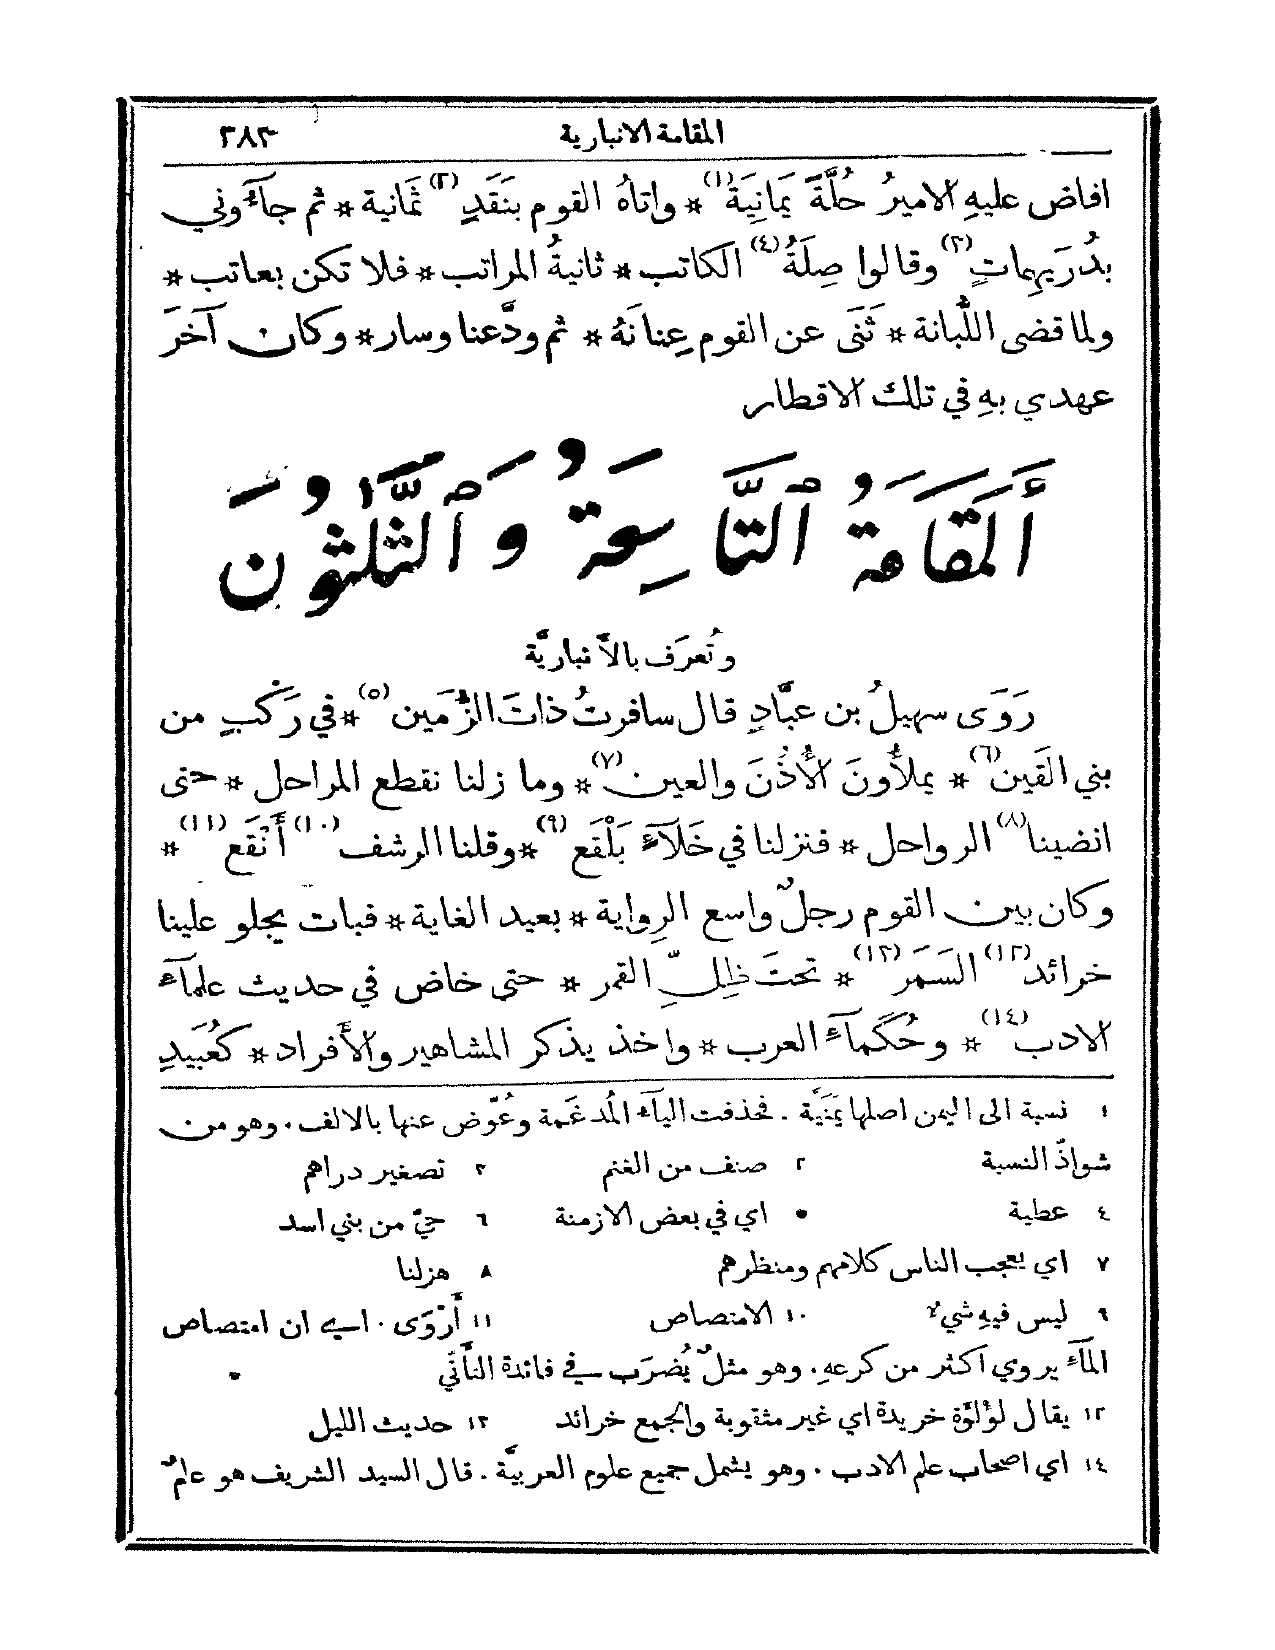 المقامة الانبارية ٣٨٣
افاض عليهِ الاميرُ حُلَّةً يَمَانِيَةً(١) * واتاهُ القوم بنَقَدٍ(٢) ثَمانية * ثم جآءُوني
بدُرَيهِماتٍ(٣) وقالوا صِلَةُ(٤) الكاتب * ثانيةُ المراتب * فلا تكن بعاتب *
ولما قضى اللُّبانة * ثَنَى عن القوم عِنانَهُ * ثم ودَّعنا وسار * وكان آخرَ
عهدي بهِ في تلك الاقطار
أَلْمَقَامَةُ ٱلتَّاسِعَةُ وَٱلثَّلٰثُونَ
وتُعرَف بالأَنباريَّة
رَوَى سهيلُ بن عبَّادٍ قال سافرتُ ذاتَ الزُّمَين(٥) * في رَكْبٍ من
بني القَين(٦) * يملأُونَ الأُذُنَ والعين(٧) * وما زلنا نقطع المراحل * حتى
انضينا(٨) الرواحل * فنزلنا في خَلَآءٍ بَلْقَع(٩) * وقلنا الرشف(١٠) أَنْقَع(١١) *
وكان بين القوم رجلٌ واسع الرِواية * بعيد الغاية * فبات يجلو علينا
خرائد(١٢) السَمَر(١٣) * تحتَ ظِلِّ القمر * حتى خاض في حديث علمآء
الادب(١٤) * وحُكَمآء العرب * واخذ يذكر المشاهير والأَفراد * كعُبَيدِ
١ نسبة الى اليمن اصلها يَمَنيَّة . فحُذفت اليآء المُدغَمة وعُوّض عنها بالالف . وهو من
شواذّ النسبة ٢ صنف من الغنم ٣ تصغير دراهم
٤ عطية ٥ اي في بعض الازمنة ٦ حيّ من بني اسد
٧ اي يعجب الناس كلامهم ومنظرهم ٨ هزلنا
٩ ليس فيهِ شيء ١٠ الامتصاص ١١ أَرْوَى . اي ان امتصاص
المآء يروي اكثر من كرعهِ . وهو مثلٌ يُضرَب في فائدة التأَنّي
١٢ يقال لؤلؤة خريدة اي غير مثقوبة والجمع خرائد ١٣ حديث الليل
١٤ اي اصحاب علم الادب . وهو يشمل جميع علوم العربيَّة . قال السيد الشريف هو علمٌ